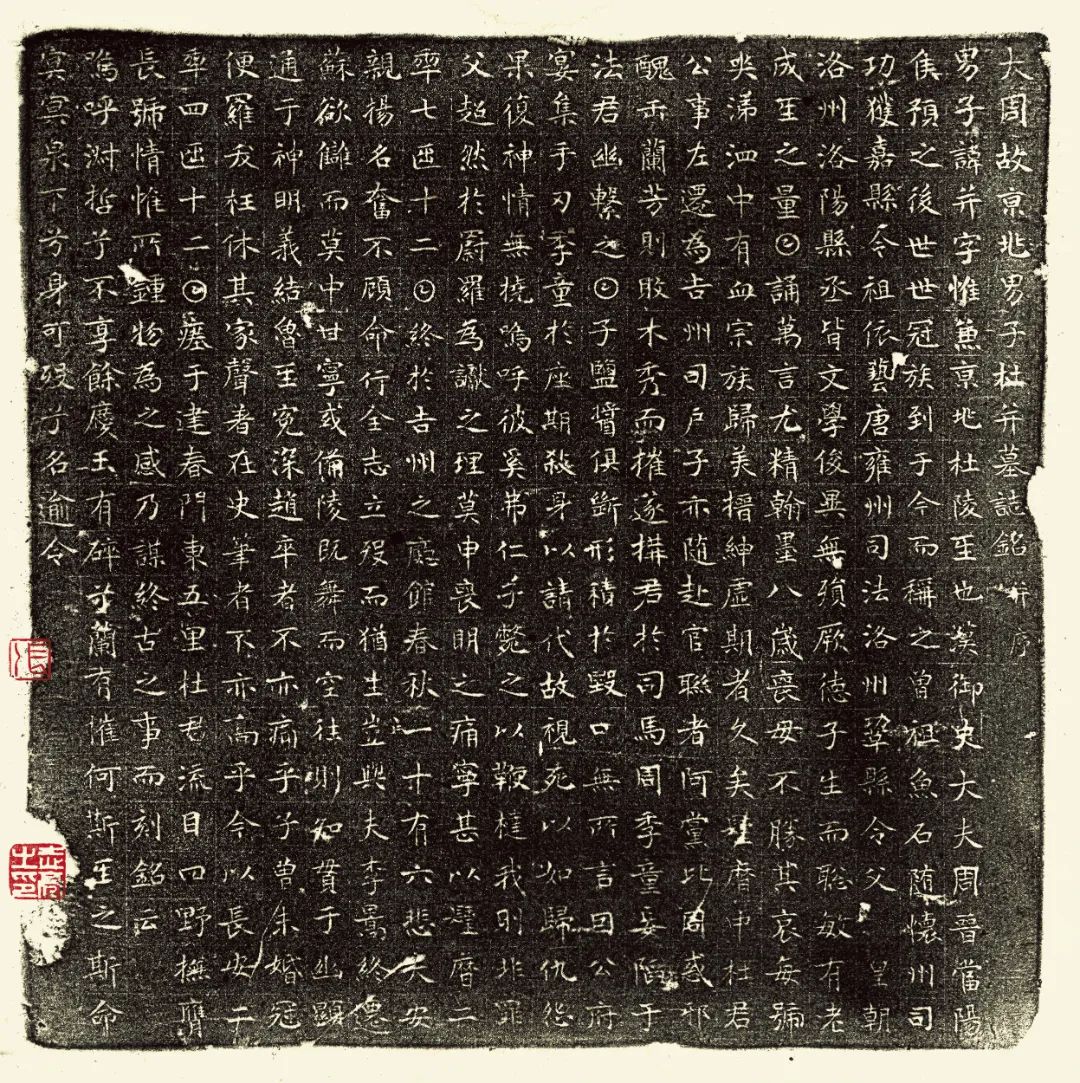 大周故京兆男子杜并墓誌銘并序
男子諱并字惟兼京兆杜陵𤯔也漢御史大夫周晉當陽
侯預之後世世冠族到于今而稱之曾祖魚石隨懷州司
功獲嘉縣令祖依藝唐雍州司法洛州鞏縣令父 皇朝
洛州洛陽縣丞皆文學俊異無殞厥德子生而聰敏有老
成𤯔之量𡆠誦萬言尤精翰墨八歲喪母不勝其哀每號
哭涕泗中有血宗族歸美搢紳虛期者久矣𨲢曆中杜君
公事左遷為吉州司戶子亦隨赴官聯者阿黨比周惑邪
醜𠙺蘭芳則敗木秀而摧遂搆君於司馬周季童妄陷于
法君幽繫之𡆠子鹽醬俱斷形積於毀口無所言因公府
宴集手刃季童於座期殺身以請代故視死以如歸仇怨
果復神情無撓嗚呼彼奚弗仁子斃之以鞭撻我則非罪
父超然於罻羅為讞之理莫申喪明之痛寧甚以𨲢曆二
𠡦七𠥱十二𡆠終於吉州之廳館春秋一十有六悲夫安
親揚名奮不顧命行全志立歿而猶生豈與夫李暠終遷
蘇欲讎而莫中甘寧或備陵既舞而空往則知貫于幽顯
通于神明義結魯𤯔冤深趙卒者不亦痛乎子曾未婚冠
便羅夭枉休其家聲著在史筆者不亦高乎今以長安二
𠡦四𠥱十二𡆠瘞于建春門東五里杜君流目四野撫膺
長號情惟所鍾物為之感乃謀終古之事而刻銘云
嗚呼淑哲兮不享餘慶玉有碎兮蘭有摧何斯𤯔之斯命
冥冥泉下兮身可歿兮名逾令